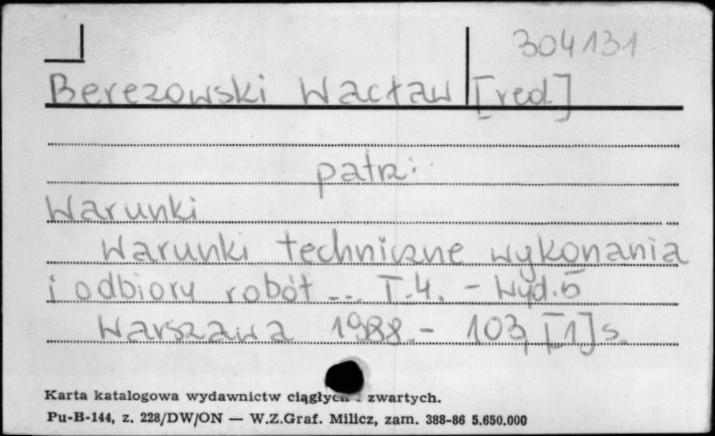 304131
Berezowski Wacław [red]
patrz:
Warunki
Warunki techniczne wykonania
i odbioru robót ... T.4. - Wyd.5
Warszawa 1988. - 103, [1] s.
Karta katalogowa wydawnictw ciągłych i zwartych.
Pu-B-144, z. 228/DW/ON — W.Z.Graf. Milicz, zam. 388-86 5.650.000